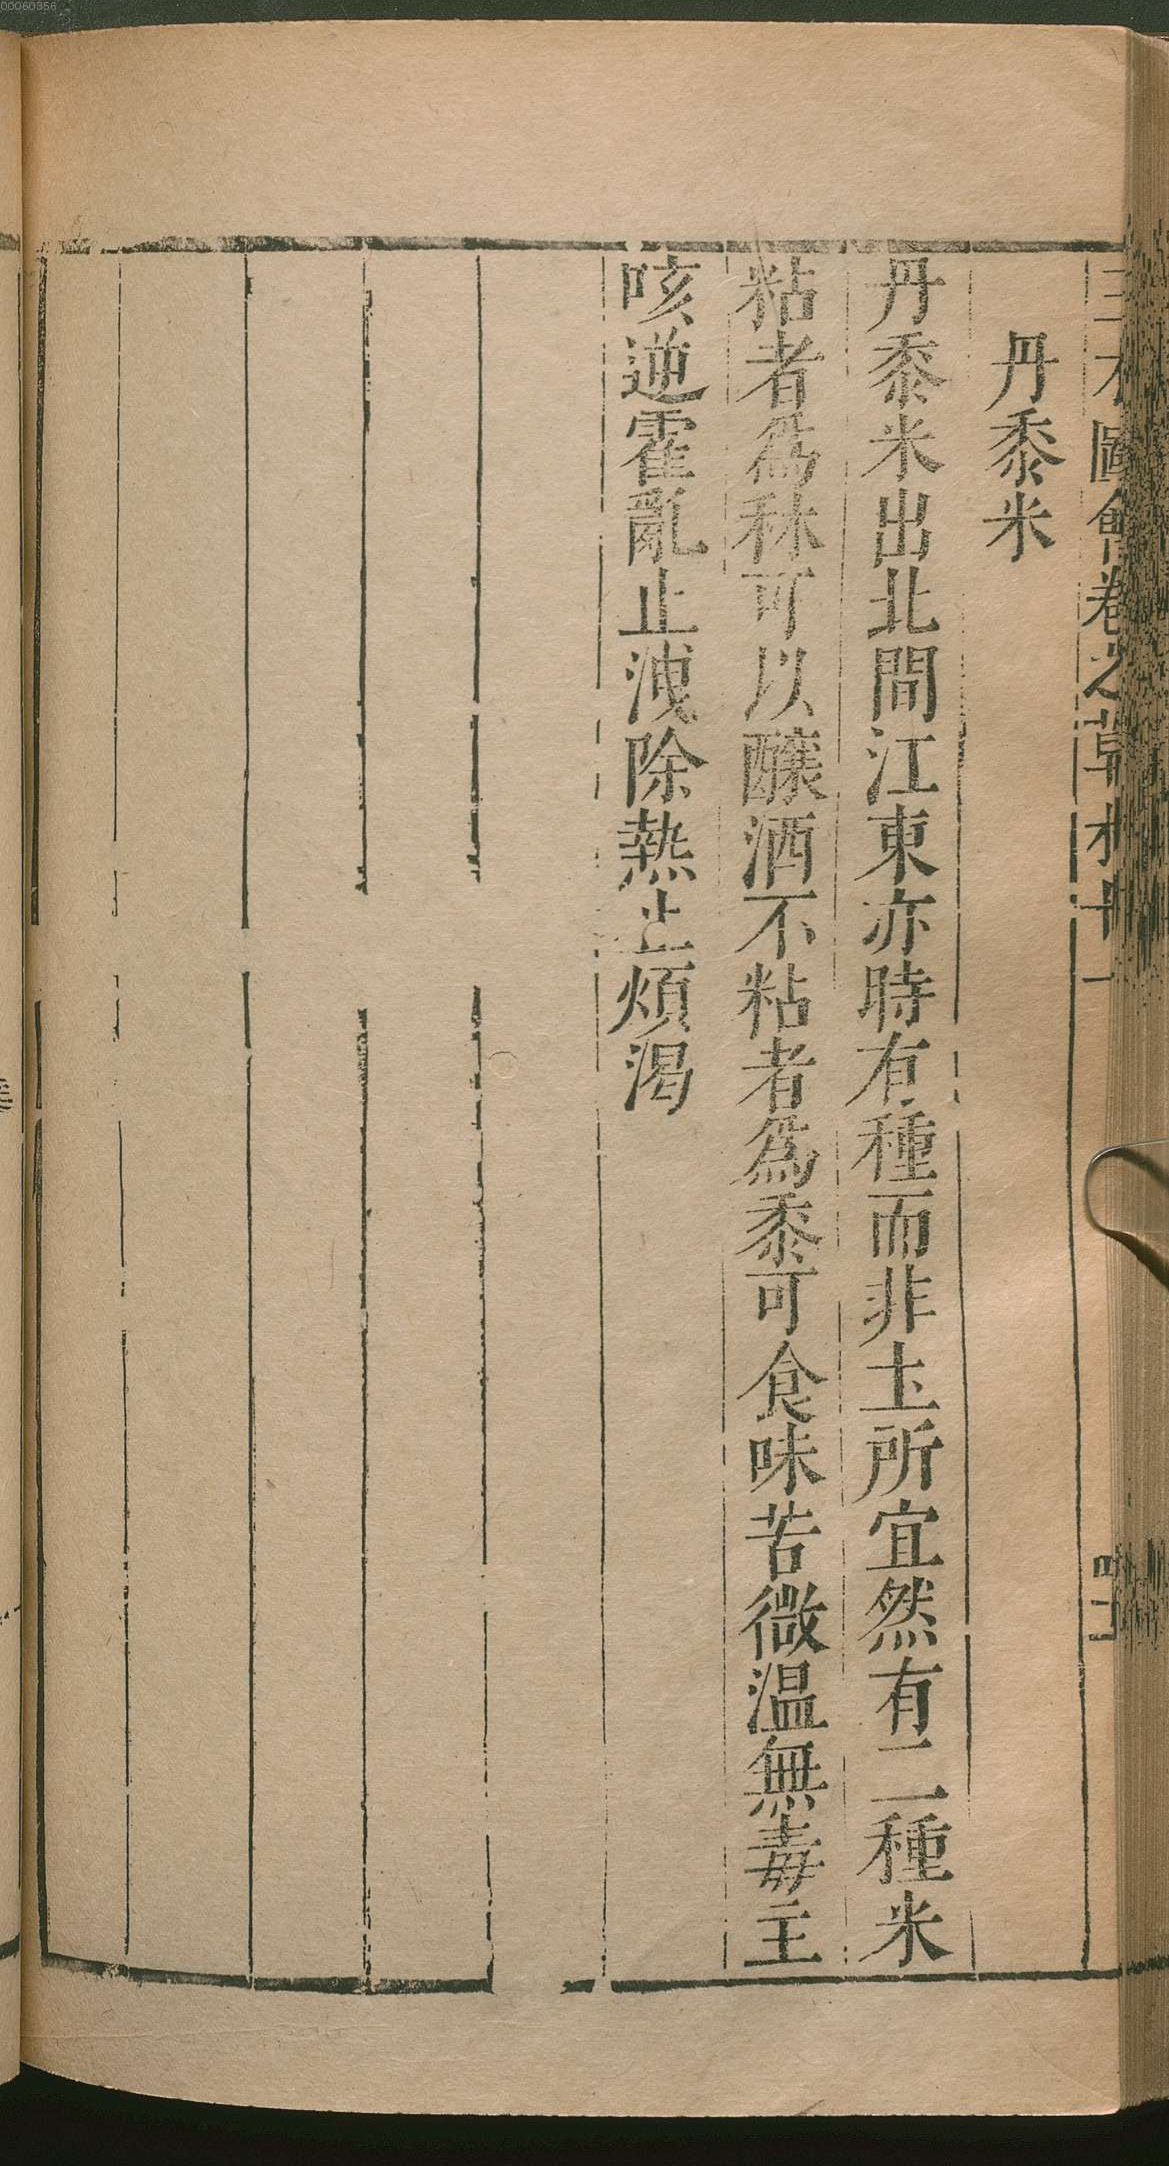 00060356
三才圖會卷之草木十一
丹黍米
丹黍米出北間江東亦時有種而非土所宜然有二種米
粘者爲秫可以釀酒不粘者爲黍可食味苦微温無毒主
咳逆霍亂止洩除熱止煩渴